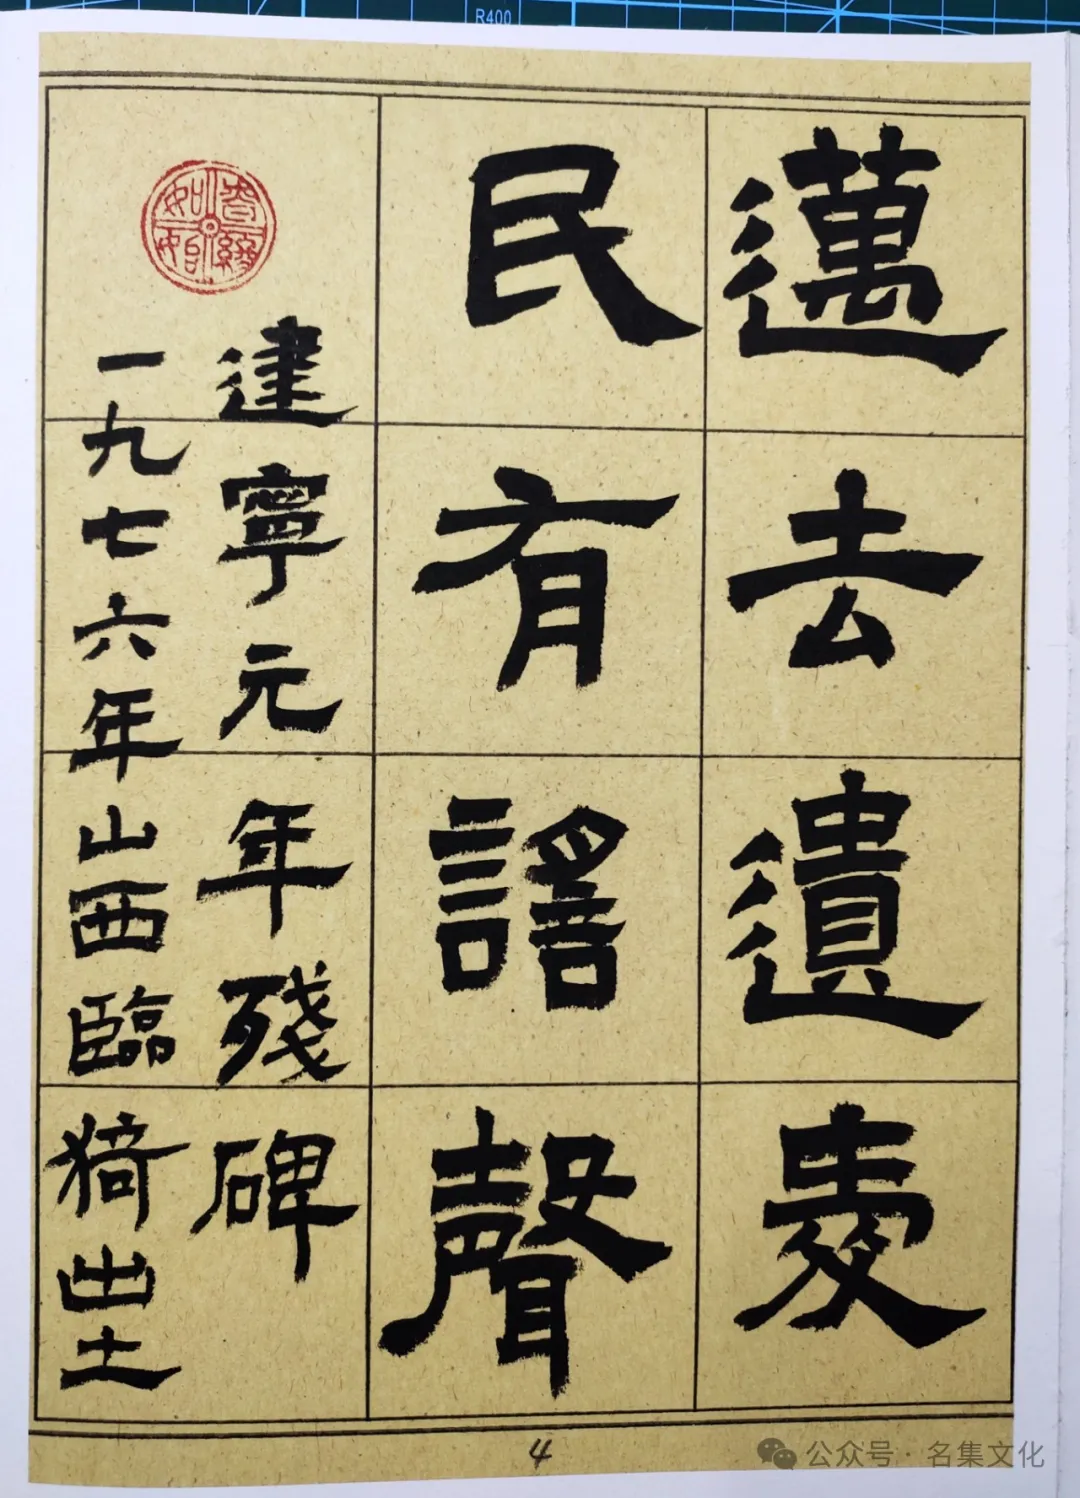 邁去遺愛
民有謠聲
建寧元年殘碑
一九七六年山西臨猗出土
4
公众号·名集文化
R400